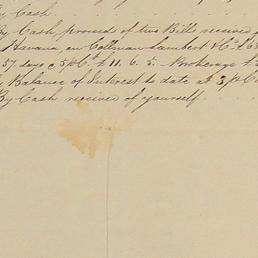 By Cash
By Cash proceeds of two Bills received
Havana on Coleman Lambert & Co.
57 days @ 5 p Ct. £ 11. 6. 5. Brokerage
Balance of Interest to date at 3 p C
By Cash received of yourself